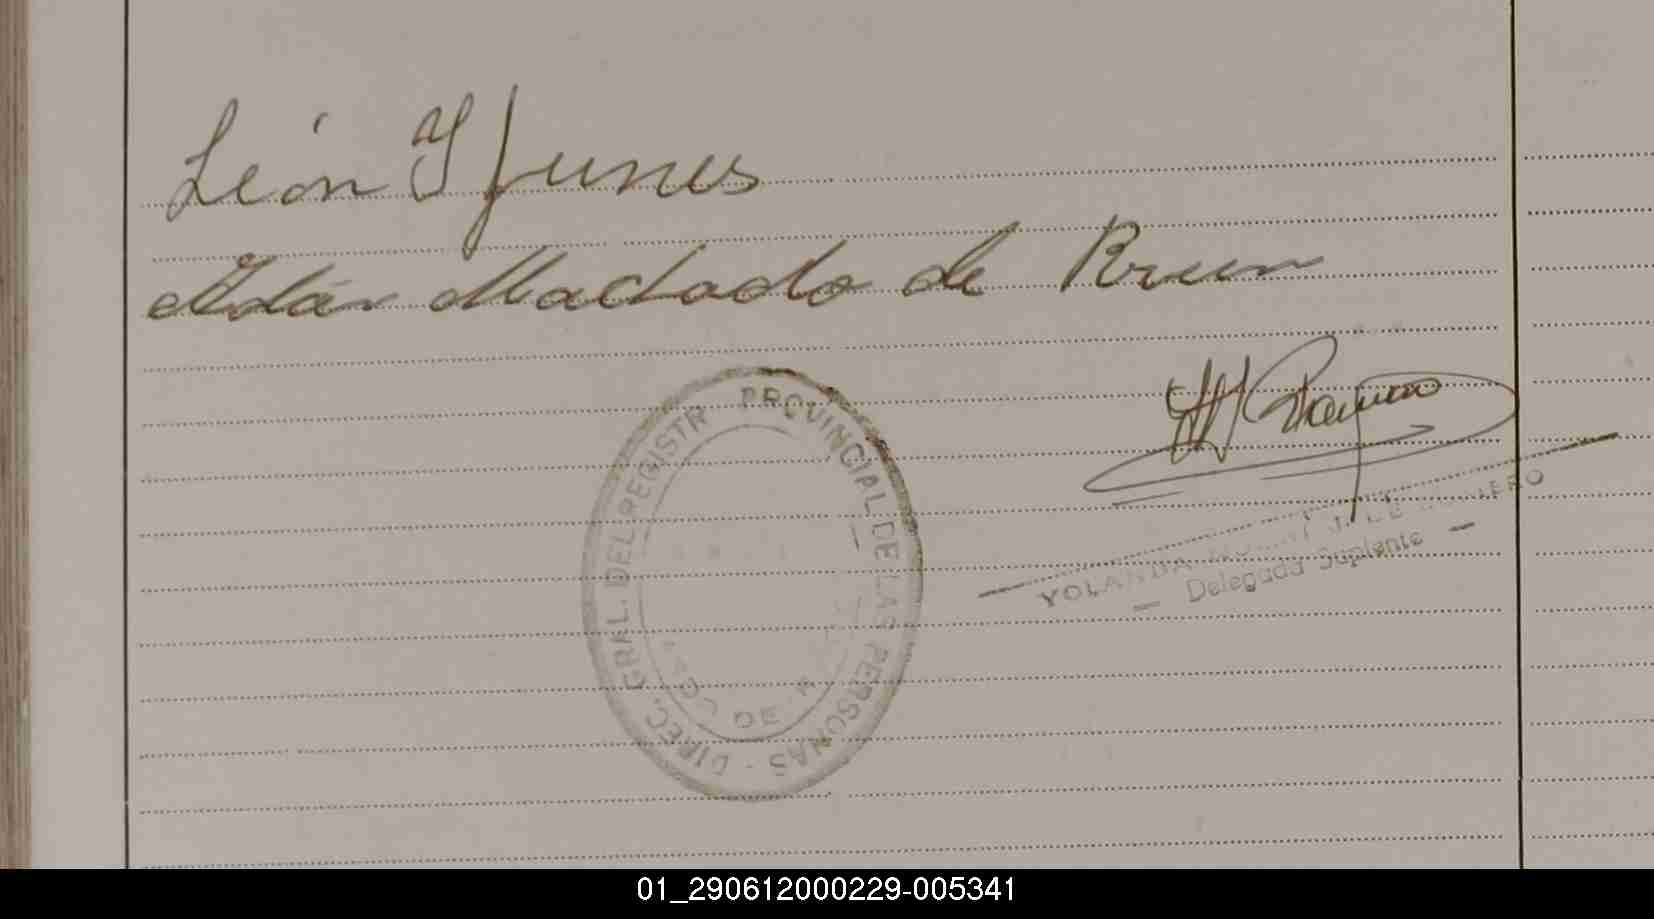 León Y funes
Adán Machado de Brun
DIREC. GRAL. DEL REGISTR PROVINCIAL DE LAS PERSONAS -
DE
YOLANDA DE ROMERO
— Delegada Suplente —
01_290612000229-005341